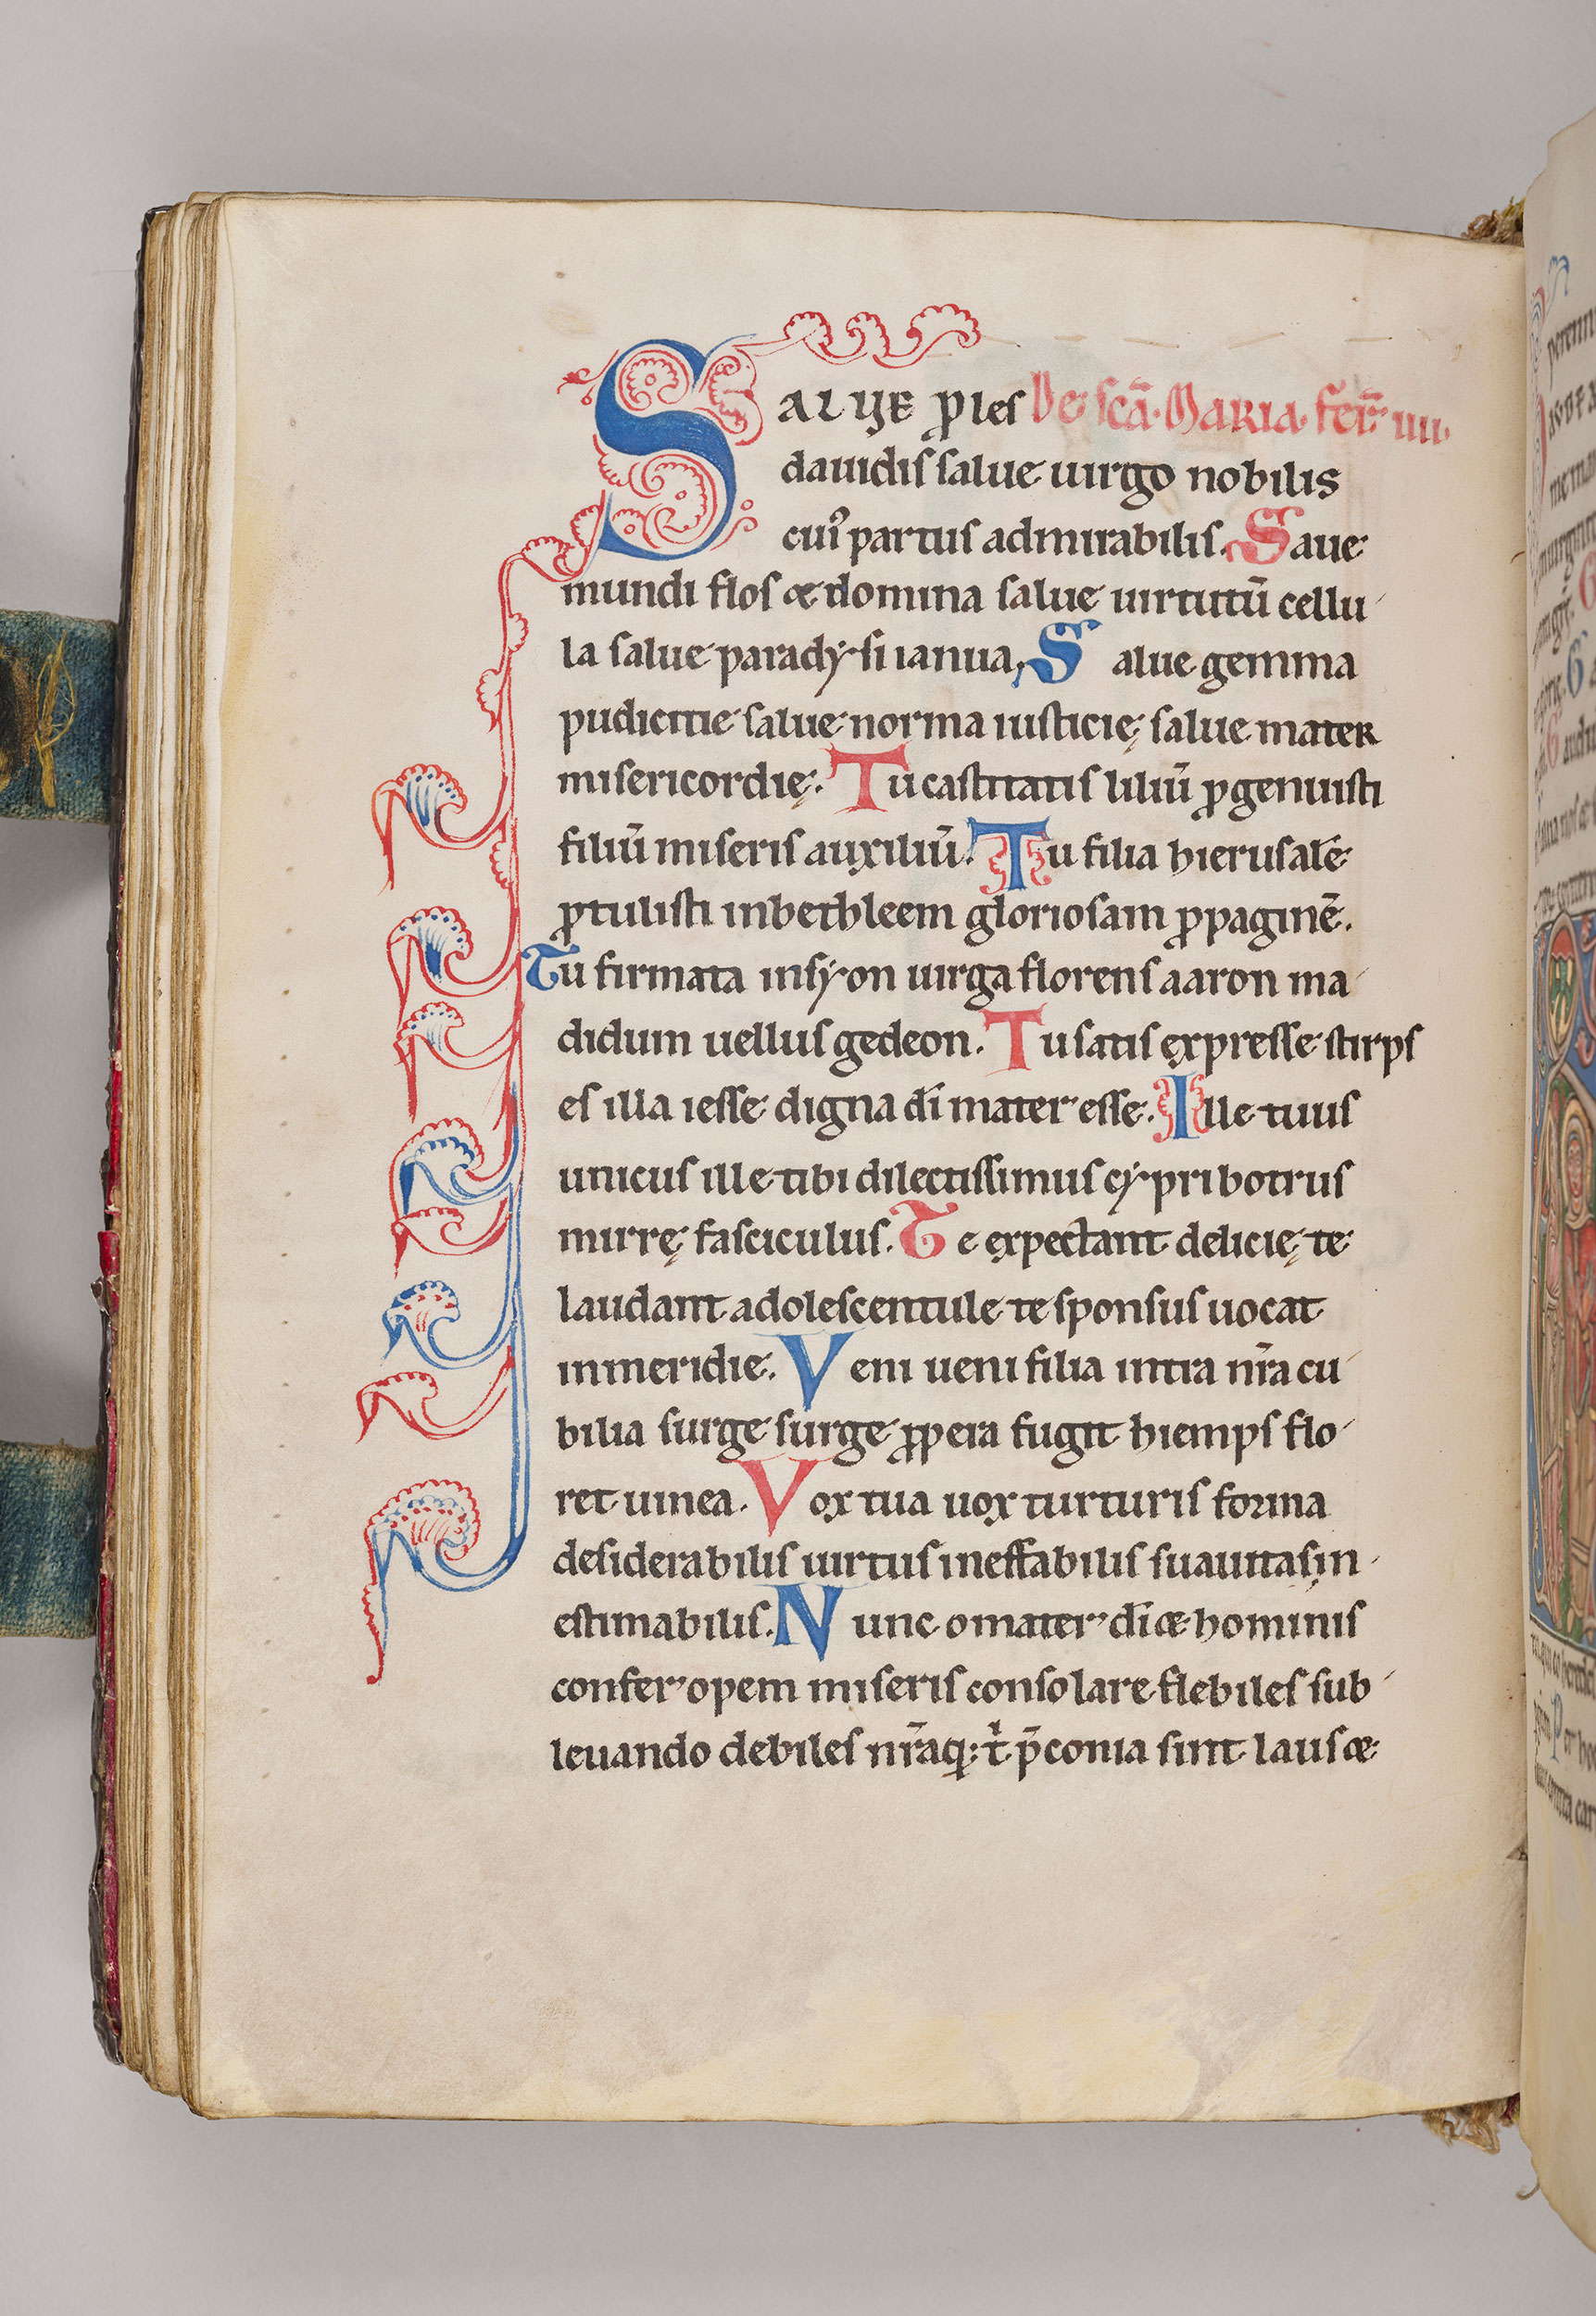 SALUE ꝓles De scā. MARIA. fer̄ iiii.
dauidis salue uirgo nobilis
cuiꝰ partus admirabilis. Saue
mundi flos & domina salue uirtutū cellu
la salue paradysi ianua, Salue gemma
pudicitie salue norma iusticię salue mater
misericordię. Tu castitatis liliū ꝓgenuisti
filiū miseris auxiliū. Tu filia hierusalē
ꝓtulisti inbethleem gloriosam ꝓpaginē.
Tu firmata insyon uirga florens aaron ma
didum uellus gedeon. Tu satis expresse stirps
es illa iesse digna dī mater esse. Ille tuus
unicus ille tibi dilectissimus cypri botrus
mirrę fasciculus. Te expectant delicię te
laudant adolescentule te sponsus uocat
inmeridie. Veni ueni filia intra nr̄a cu
bilia surge surge ꝓpera fugit hiemps flo
ret uinea. Vox tua uox turturis forma
desiderabilis uirtus ineffabilis suauitas in
estimabilis. Nunc o mater dī & hominis
confer opem miseris consolare flebiles sub
leuando debiles nr̄aq; t̄ p̄conia sint laus &